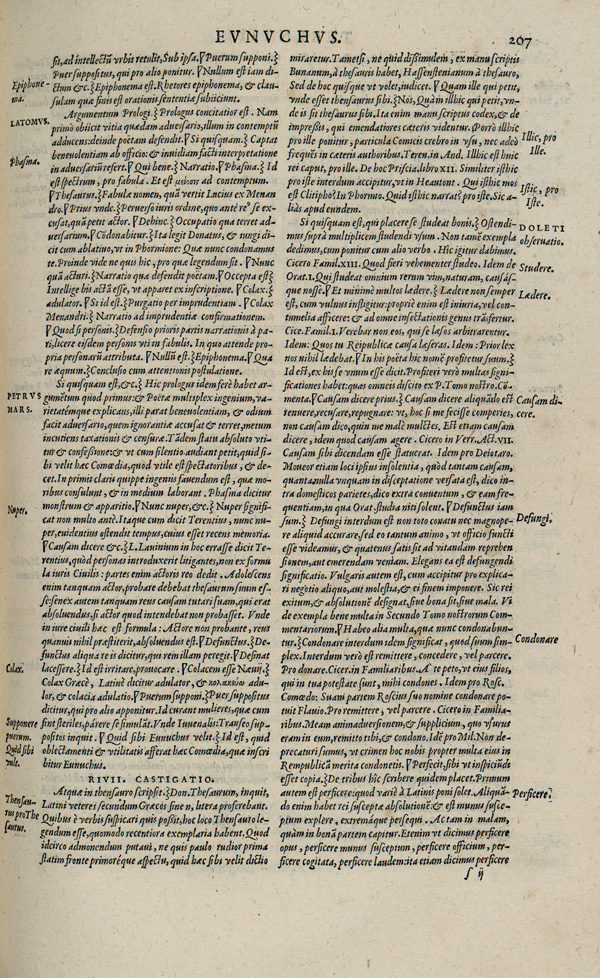 EVNVCHVS.
207
sit, ad intellectũ vrbis retulit, Sub ipsa. Puerum supponi.
Puer suppositus, qui pro alio ponitur. Nullum est iam di-
ctum &c. Epiphonema est. Rhetores epiphonema, & clau-
sulam quæ finis est orationis sententia subiiciunt.
Epiphone-
ma.
LATOMVS.
Argumentum Prologi. Prologus concitatior est. Nam
primo obiicit vitia quædam aduersario, illum in contemptũ
adducens: deinde poëtam defendit. Si quisquam. Captat
beneuolentiam ab officio: & inuidiam facti interpretatione
in aduersariũ refert. Qui bene. Narratio. Phasma. Id
est spectrum, pro fabula. Et est ad contemptum.
Thesaurus. Fabulæ nomen, quã vertit Lucius ex Menan
dro. Prius vnde. Peruerso iuris ordine, quo ante reus se ex-
cusat, quã petit actor. Dehinc. Occupatio qua terret ad-
uersarium. Cõdonabitur. Ita legit Donatus, & fungi di-
cit cum ablatiuo, vt in Phormione: Quæ nunc condonamus
te. Proinde vide ne quis hic, pro quæ legendum sit. Nunc
quã acturi. Narratio qua defendit poëtam. Occepta est
Intellige bis actã esse, vt apparet ex inscriptione. Colax.
adulator. Si id est. Purgatio per imprudentiam. Colax
Menandri. Narratio ad imprudentiæ confirmationem.
Quod si personis. Defensio prioris partis narrationis à pa-
ri, licere eisdem personis vti in fabulis. In quo attende pro-
pria personarũ attributa. Nullũ est. Epiphonema. Qua
re æquum. Conclusio cum attentionis postulatione.
Phasma.
PETRVS
MARS.
Si quisquam est, &c. Hic prologus idem ferè habet ar-
gumẽtum quod primus: & Poëtæ multiplex ingenium, va-
rietatémque explicans, illi parat beneuolentiam, & odium
facit aduersario, quem ignorantiæ accusat & terret, metum
incutiens taxationis & censuræ. Tãdem statu absoluto vti-
tur & confessione: & vt cum silentio audiant petit, quid si-
bi velit hæc Comœdia, quod vtile est spectatoribus, & de-
cet. In primis claris quippe ingeniis fauendum est, quæ mo-
ribus consulunt, & in medium laborant. Phasma dicitur
monstrum & apparitio. Nunc nuper, &c. Nuper signifi-
cat non multo antè. Itaque cum dicit Terentius, nunc nu-
per, euidentius ostendit tempus, cuius esset recens memoria.
Causam dicere &c. L. Lauinium in hoc errasse dicit Te-
rentius, quòd personas introduxerit litigantes, non ex formu
la iuris Ciuilis: partes enim actoris reo dedit. Adolescens
enim tanquam actor, probare debebat thesaurum suum es-
se: senex autem tanquam reus causam tutari suam, qui erat
absoluendus, si actor quod intendebat non probasset. Vnde
in iure ciuili hæc est formula: Actore non probante, reus
quanuis nihil præstiterit, absoluendus est. Defunctus. De-
functus aliqua re is dicitur, qui rem illam peregit. Desinat
lacessere. Id est irritare, prouocare. Colacem esse Næuij.
Colax Græcè, Latinè dicitur adulator, & κολακεύω adu-
lor, & colacia adulatio. Puerum supponi. Puer suppositus
dicitur, qui pro alio apponitur. Id curant mulieres, quæ cum
sint steriles, párere se simulãt. Vnde Iuuenalis: Transeo sup-
positos inquit. Quid sibi Eunuchus velit. Id est, quid
oblectamenti & vtilitatis afferat hæc Comœdia, quæ inscri
bitur Eunuchus.
Nuper.
Colax.
Supponere
puerum.
Quid sibi
vult.
RIVII. CASTIGATIO.
Atque in thensauro scripsit. Don. Thesaurum, inquit,
Latini veteres secundum Græcos sine n, litera proferebant.
Quibus è verbis suspicari quis possit, hoc loco Thensauro le-
gendum esse, quomodo recentiora exemplaria habent. Quod
idcirco admonendum putaui, ne quis paulo rudior prima
statim fronte primoréque aspectu, quid hæc sibi velit dictio
Thensau-
rus pro The
saurus.
miraretur. Tametsi, ne quid dissimulem, ex manuscriptis
Bunanum, à thesauris habet, Hassenstenianum à thesauro,
Sed de hoc quisque vt volet, iudicet. Quam ille qui petit,
vnde esset thesaurus sibi. Nos, Quàm illhic qui petit, vn-
de is sit thesaurus sibi. Ita enim manuscriptus codex, & de
impressis, qui emendatiores cæteris videntur. Porrò illhic
pro ille ponitur, particula Comicis crebro in vsu, nec adeò
frequẽs in cæteris authoribus. Teren. in And. Illhic est huic
rei caput, pro ille. De hoc Priscia. libro XII. Similiter isthic
pro iste interdum accipitur, vt in Heautont. Qui isthic mos
est Clitipho? In Phormio. Quid isthic narrat? pro iste. Sic a-
liàs apud eundem.
Illic, pro
Ille.
Istic, pro
Iste.
DOLETI
obseruatio.
Si quisquam est, qui placere se studeat bonis. Ostendi-
mus suprà multiplicem studendi vsum. Non tamẽ exempla
dedimus, cum ponitur cum alio verbo. Hic igitur dabimus.
Cicero Fam. XIII. Quod fieri vehementer studeo. Idem de
Orat. 1. Qui studeat omnium rerum vim, naturam, causás-
que nosse. Et minimè multos lædere. Lædere non semper
est, cum vulnus infligitur: propriè enim est iniuria, vel con-
tumelia afficere: & ad omne insectationis genus trãsfertur.
Cice. Famil. 1. Verebar non eos, qui se læsos arbitrarentur.
Idem: Quos tu Reipublicæ causa læseras. Idem: Prior lex
nos nihil lædebat. In his poëta hic nomẽ profitetur suum.
Id est, ex his se vnum esse dicit. Profiteri verò multas signi-
ficationes habet: quas omneis discito ex P. Tomo nostro. Cõ-
menta. Causam dicere prius. Causam dicere aliquãdo est
renuere, recusare, repugnare: vt, hoc si me fecisse comperies,
non causam dico, quin me malè mulctes. Est etiam causam
dicere, idem quod causam agere. Cicero in Verr. Act. VII.
Causam sibi dicendam esse statuerat. Idem pro Deiotaro.
Moueor etiam loci ipsius insolentia, quòd tantam causam,
quanta nulla vnquam in disceptatione versata est, dico in-
tra domesticos parietes, dico extra conuentum, & eam fre-
quentiam, in qua Orat. studia niti solent. Defunctus iam
sum. Defungi interdum est non toto conatu nec magnope-
re aliquid accurare, sed eo tantum animo, vt officio functi
esse videamur, & quatenus satis sit ad vitandam reprehen
sionem, aut emerendam veniam. Elegans ea est defungendi
significatio. Vulgaris autem est, cum accipitur pro explica-
ri negotio aliquo, aut molestia, & ei finem imponere. Sic rei
exitum, & absolutionẽ designat, siue bona sit, siue mala. Vi
de exempla bene multa in Secundo Tomo nostrorum Com-
mentariorum. Habeo alia multa, quæ nunc condonabun-
tur. Condonare interdum idem significat, quod suum sim-
plex. Interdum verò est remittere, concedere, vel parcere.
Pro donare. Cicer. in Familiaribus. A te peto, vt eius filios,
qui in tua potestate sunt, mihi condones. Idem pro Rosc.
Comœdo: Suam partem Roscius suo nomine condonare po-
tuit Flauio. Pro remittere, vel parcere. Cicero in Familia-
ribus. Meam animaduersionem, & supplicium, quo vsurus
eram in eum, remitto tibi, & condono. Idẽ pro Mil. Non de-
precaturi sumus, vt crimen hoc nobis propter multa eius in
Rempublicã merita condonetis. Perfecit, sibi vt inspiciũdi
esset copia. De tribus hîc scribere quidem placet. Primum
autem est perficere: quod variè à Latinis poni solet. Aliquã-
do enim habet rei susceptæ absolutionẽ: & est munus susce-
ptum explere, extremáque persequi. Ac tam in malam,
quàm in bonã partem capitur. Etenim vt dicimus perficere
opus, perficere munus susceptum, perficere officium, per-
ficere cogitata, perficere laudem: ita etiam dicimus perficere
Studere.
Lædere.
Causam di-
cere.
Defungi.
Condonare
Perficere.
s ij